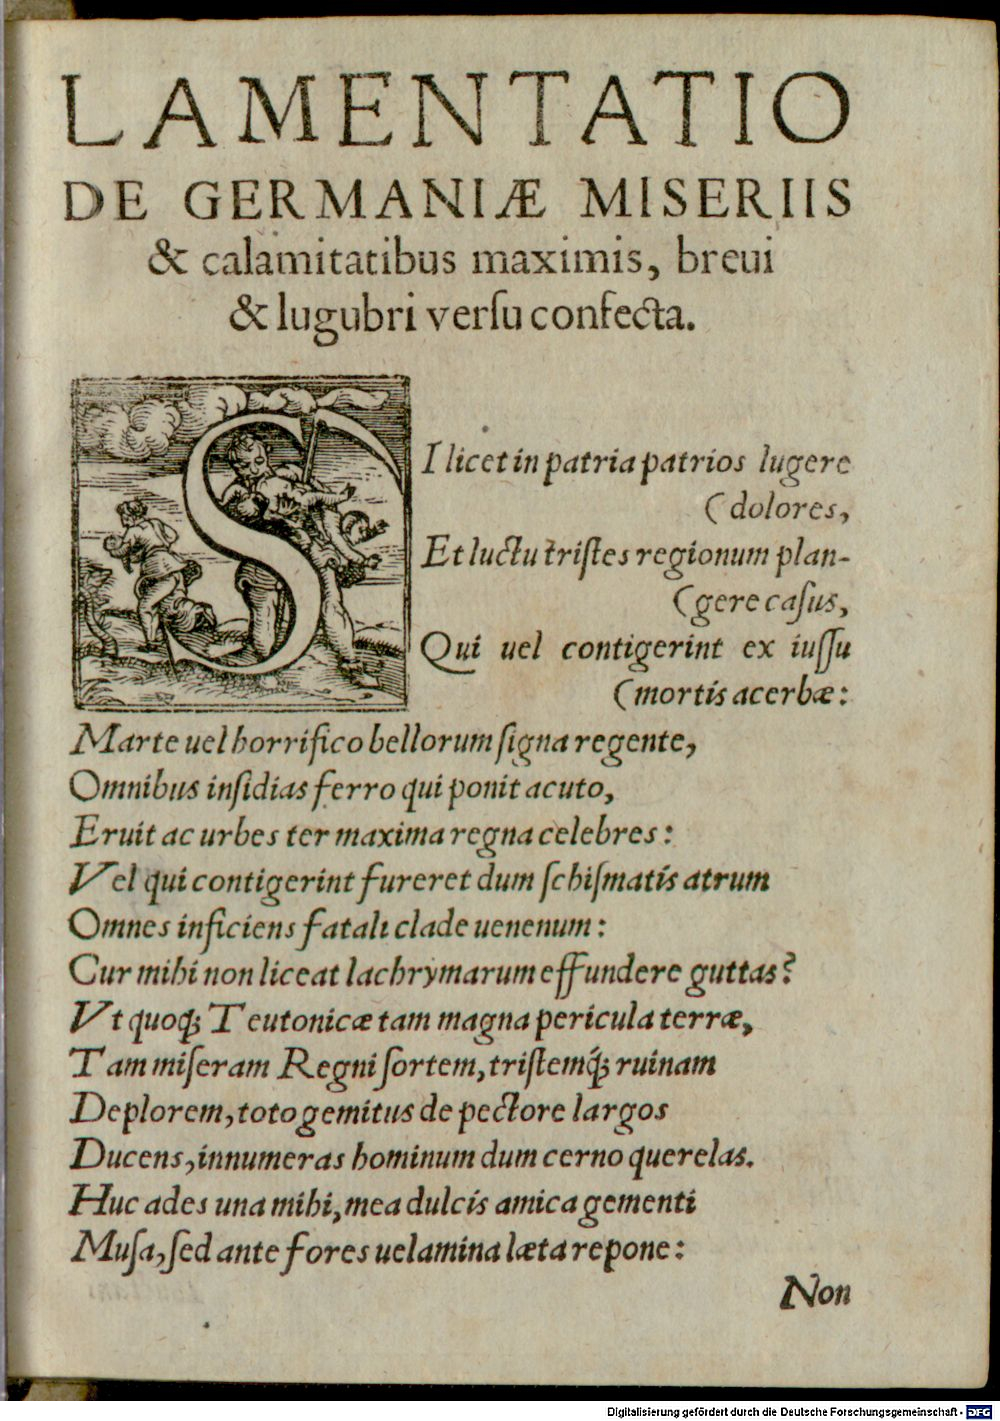 LAMENTATIO
DE GERMANIÆ MISERIIS
& calamitatibus maximis, breui
& lugubri verſu confecta.
SI licet in patria patrios lugere
(dolores,
Et luctu triſtes regionum plan-
(gere caſus,
Qui uel contigerint ex iuſſu
(mortis acerbæ:
Marte uel horrifico bellorum ſigna regente,
Omnibus inſidias ferro qui ponit acuto,
Eruit ac urbes ter maxima regna celebres:
Vel qui contigerint fureret dum ſchiſmatis atrum
Omnes inficiens fatali clade uenenum:
Cur mihi non liceat lachrymarum effundere guttas?
Vt quoq; Teutonicæ tam magna pericula terræ,
Tam miſeram Regni ſortem, triſtemq́; ruinam
Deplorem, toto gemitus de pectore largos
Ducens, innumeras hominum dum cerno querelas.
Huc ades una mihi, mea dulcis amica gementi
Muſa, ſed ante fores uelamina læta repone:
Non
Digitalisierung gefördert durch die Deutsche Forschungsgemeinschaft - DFG